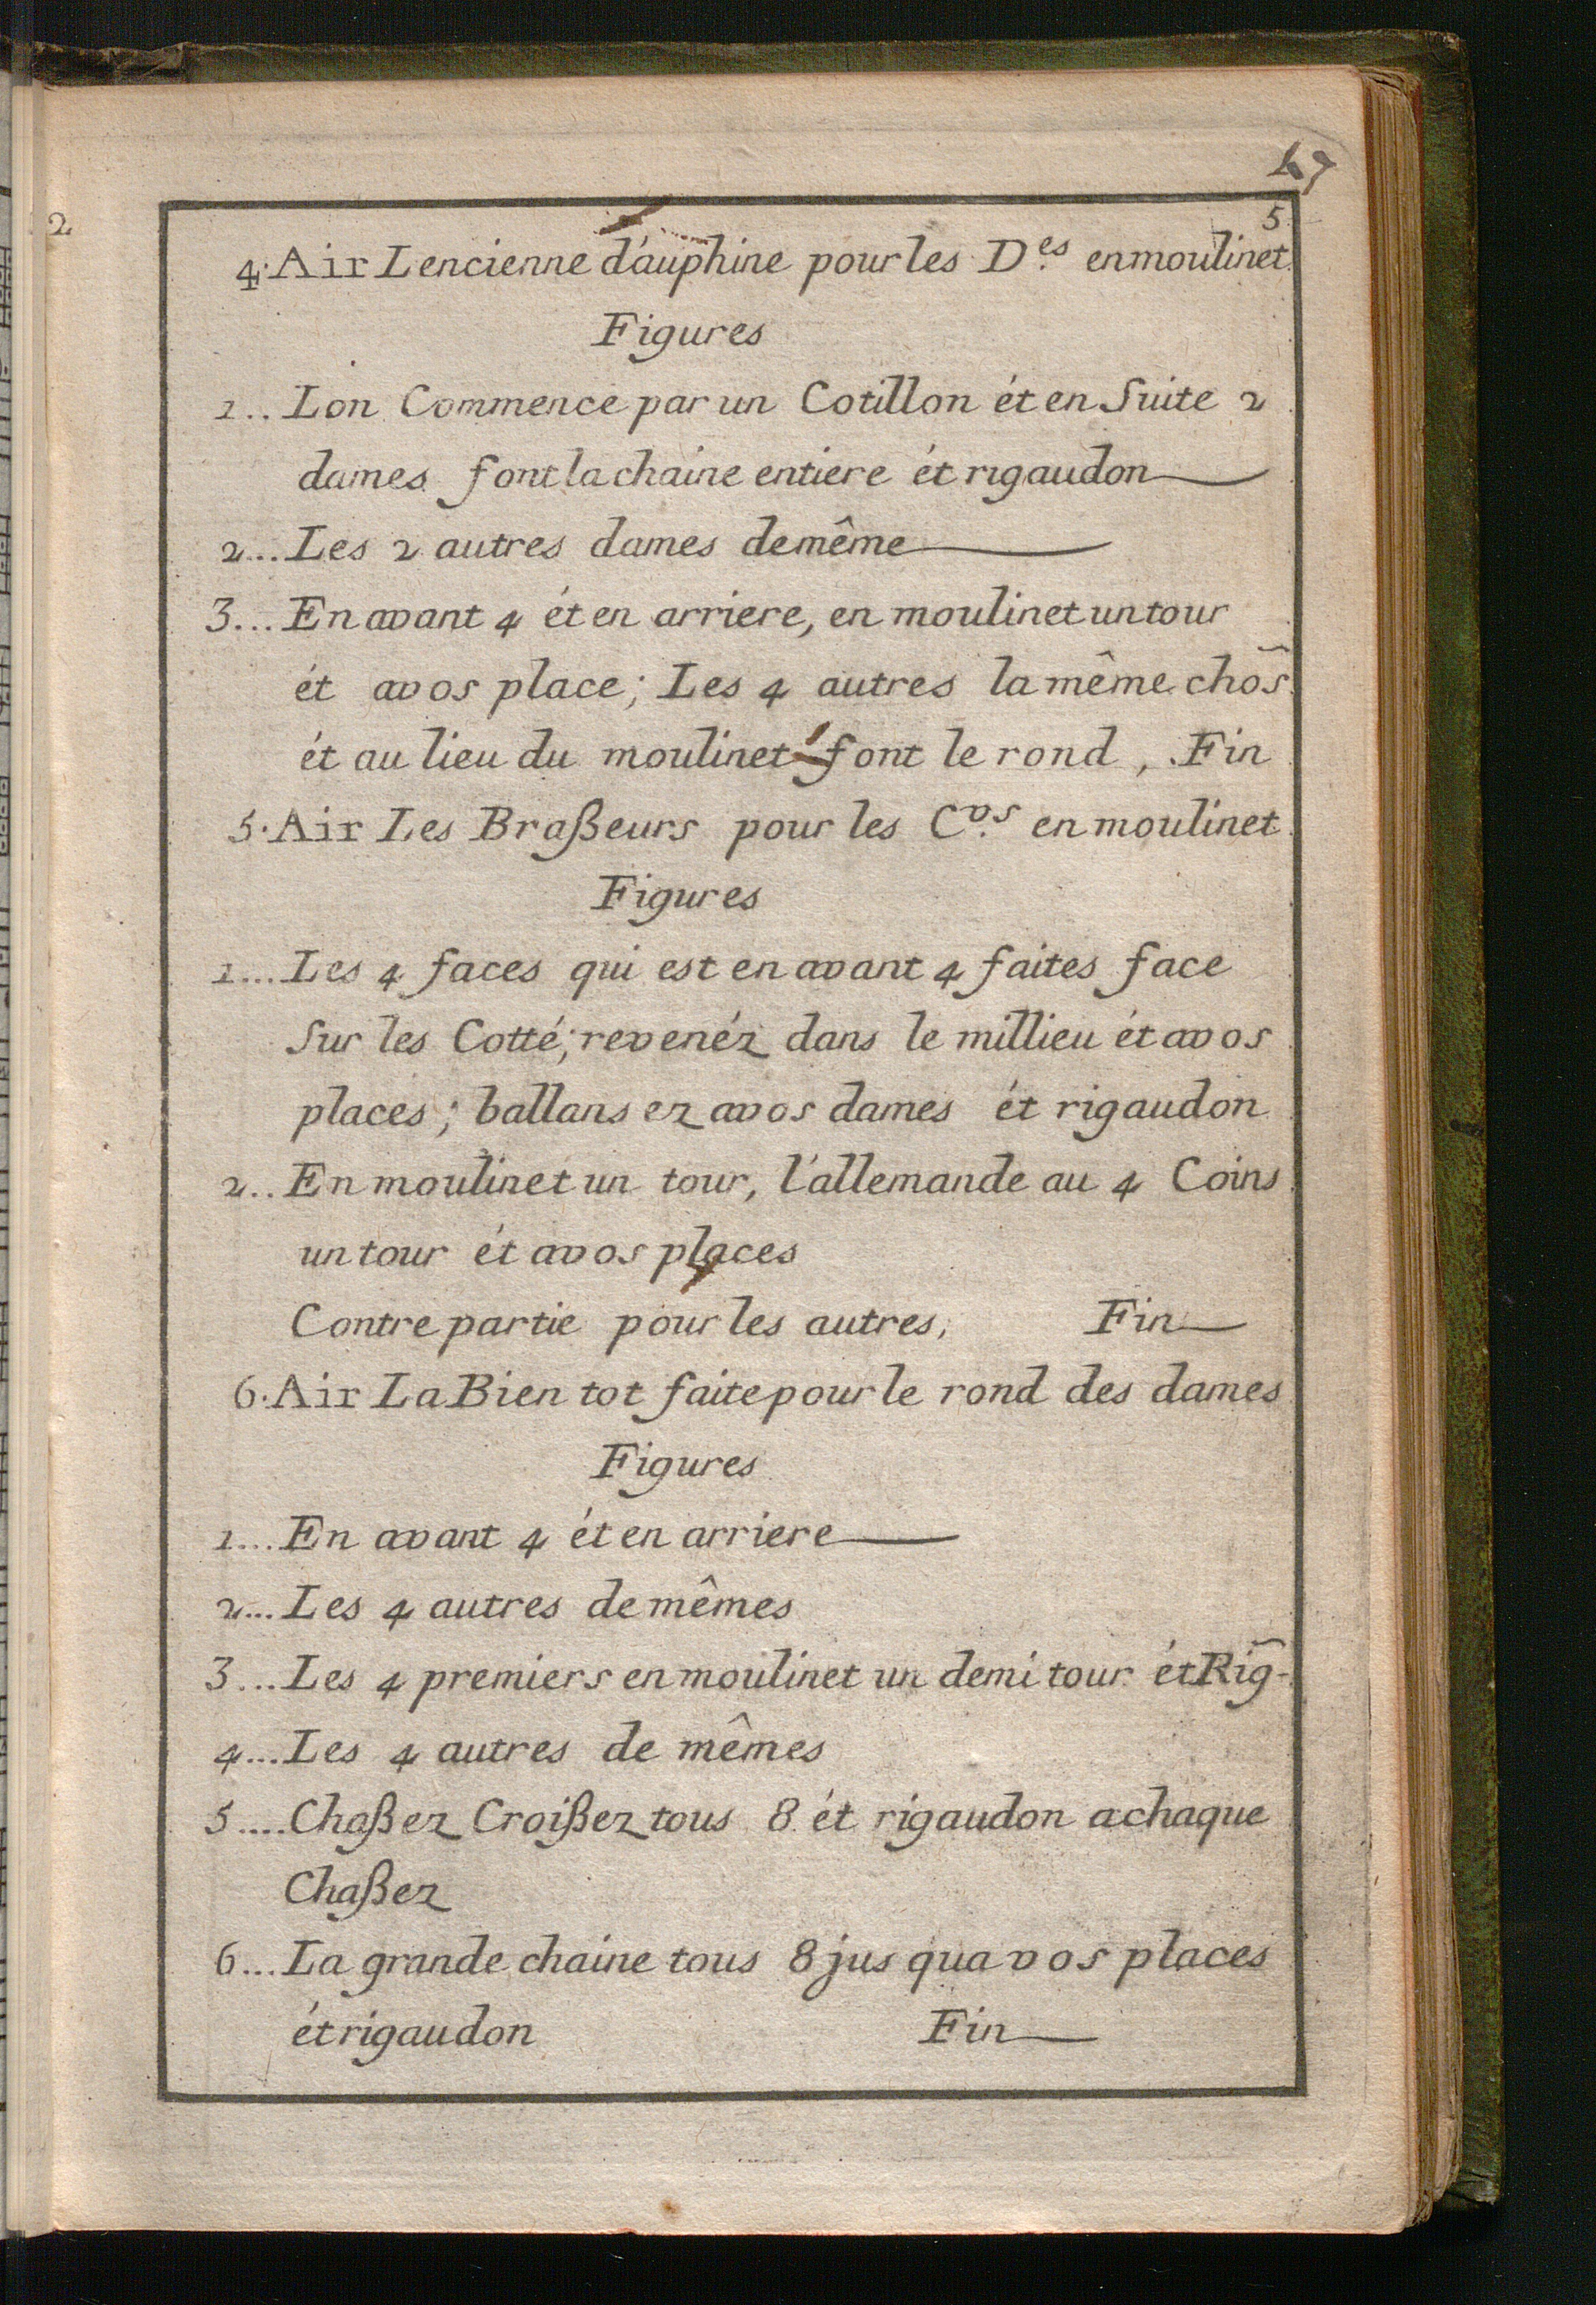 5
4. Air Lencienne d'auphine pour les D.es en moulinet
Figures
1.. Lon Commence par un Cotillon ét en Suite 2
dames font la chaine entiere ét rigaudon
2... Les 2 autres dames de même
3... En avant 4 ét en arriere, en moulinet un tour
ét avos place; Les 4 autres la même chos̃
ét au lieu du moulinet font le rond, . Fin
5. Air Les Braßeurs pour les C.vs en moulinet
Figures
1... Les 4 faces qui est en avant 4 faites face
Sur les Cotté; revenéz dans le millieu ét avos
places; ballansez avos dames ét rigaudon
2.. En moulinet un tour, l'allemande au 4 Coins
un tour ét avos places
Contre partie pour les autres, Fin
6. Air La Bien tot faite pour le rond des dames
Figures
1... En avant 4 ét en arriere
2... Les 4 autres de mêmes
3... Les 4 premiers en moulinet un demi tour ét Rig̃-
4... Les 4 autres de mêmes
5.... Chaßez Croißez tous 8 ét rigaudon a chaque
Chaßez
6... La grande chaine tous 8 jus qua vos places
ét rigaudon Fin
2